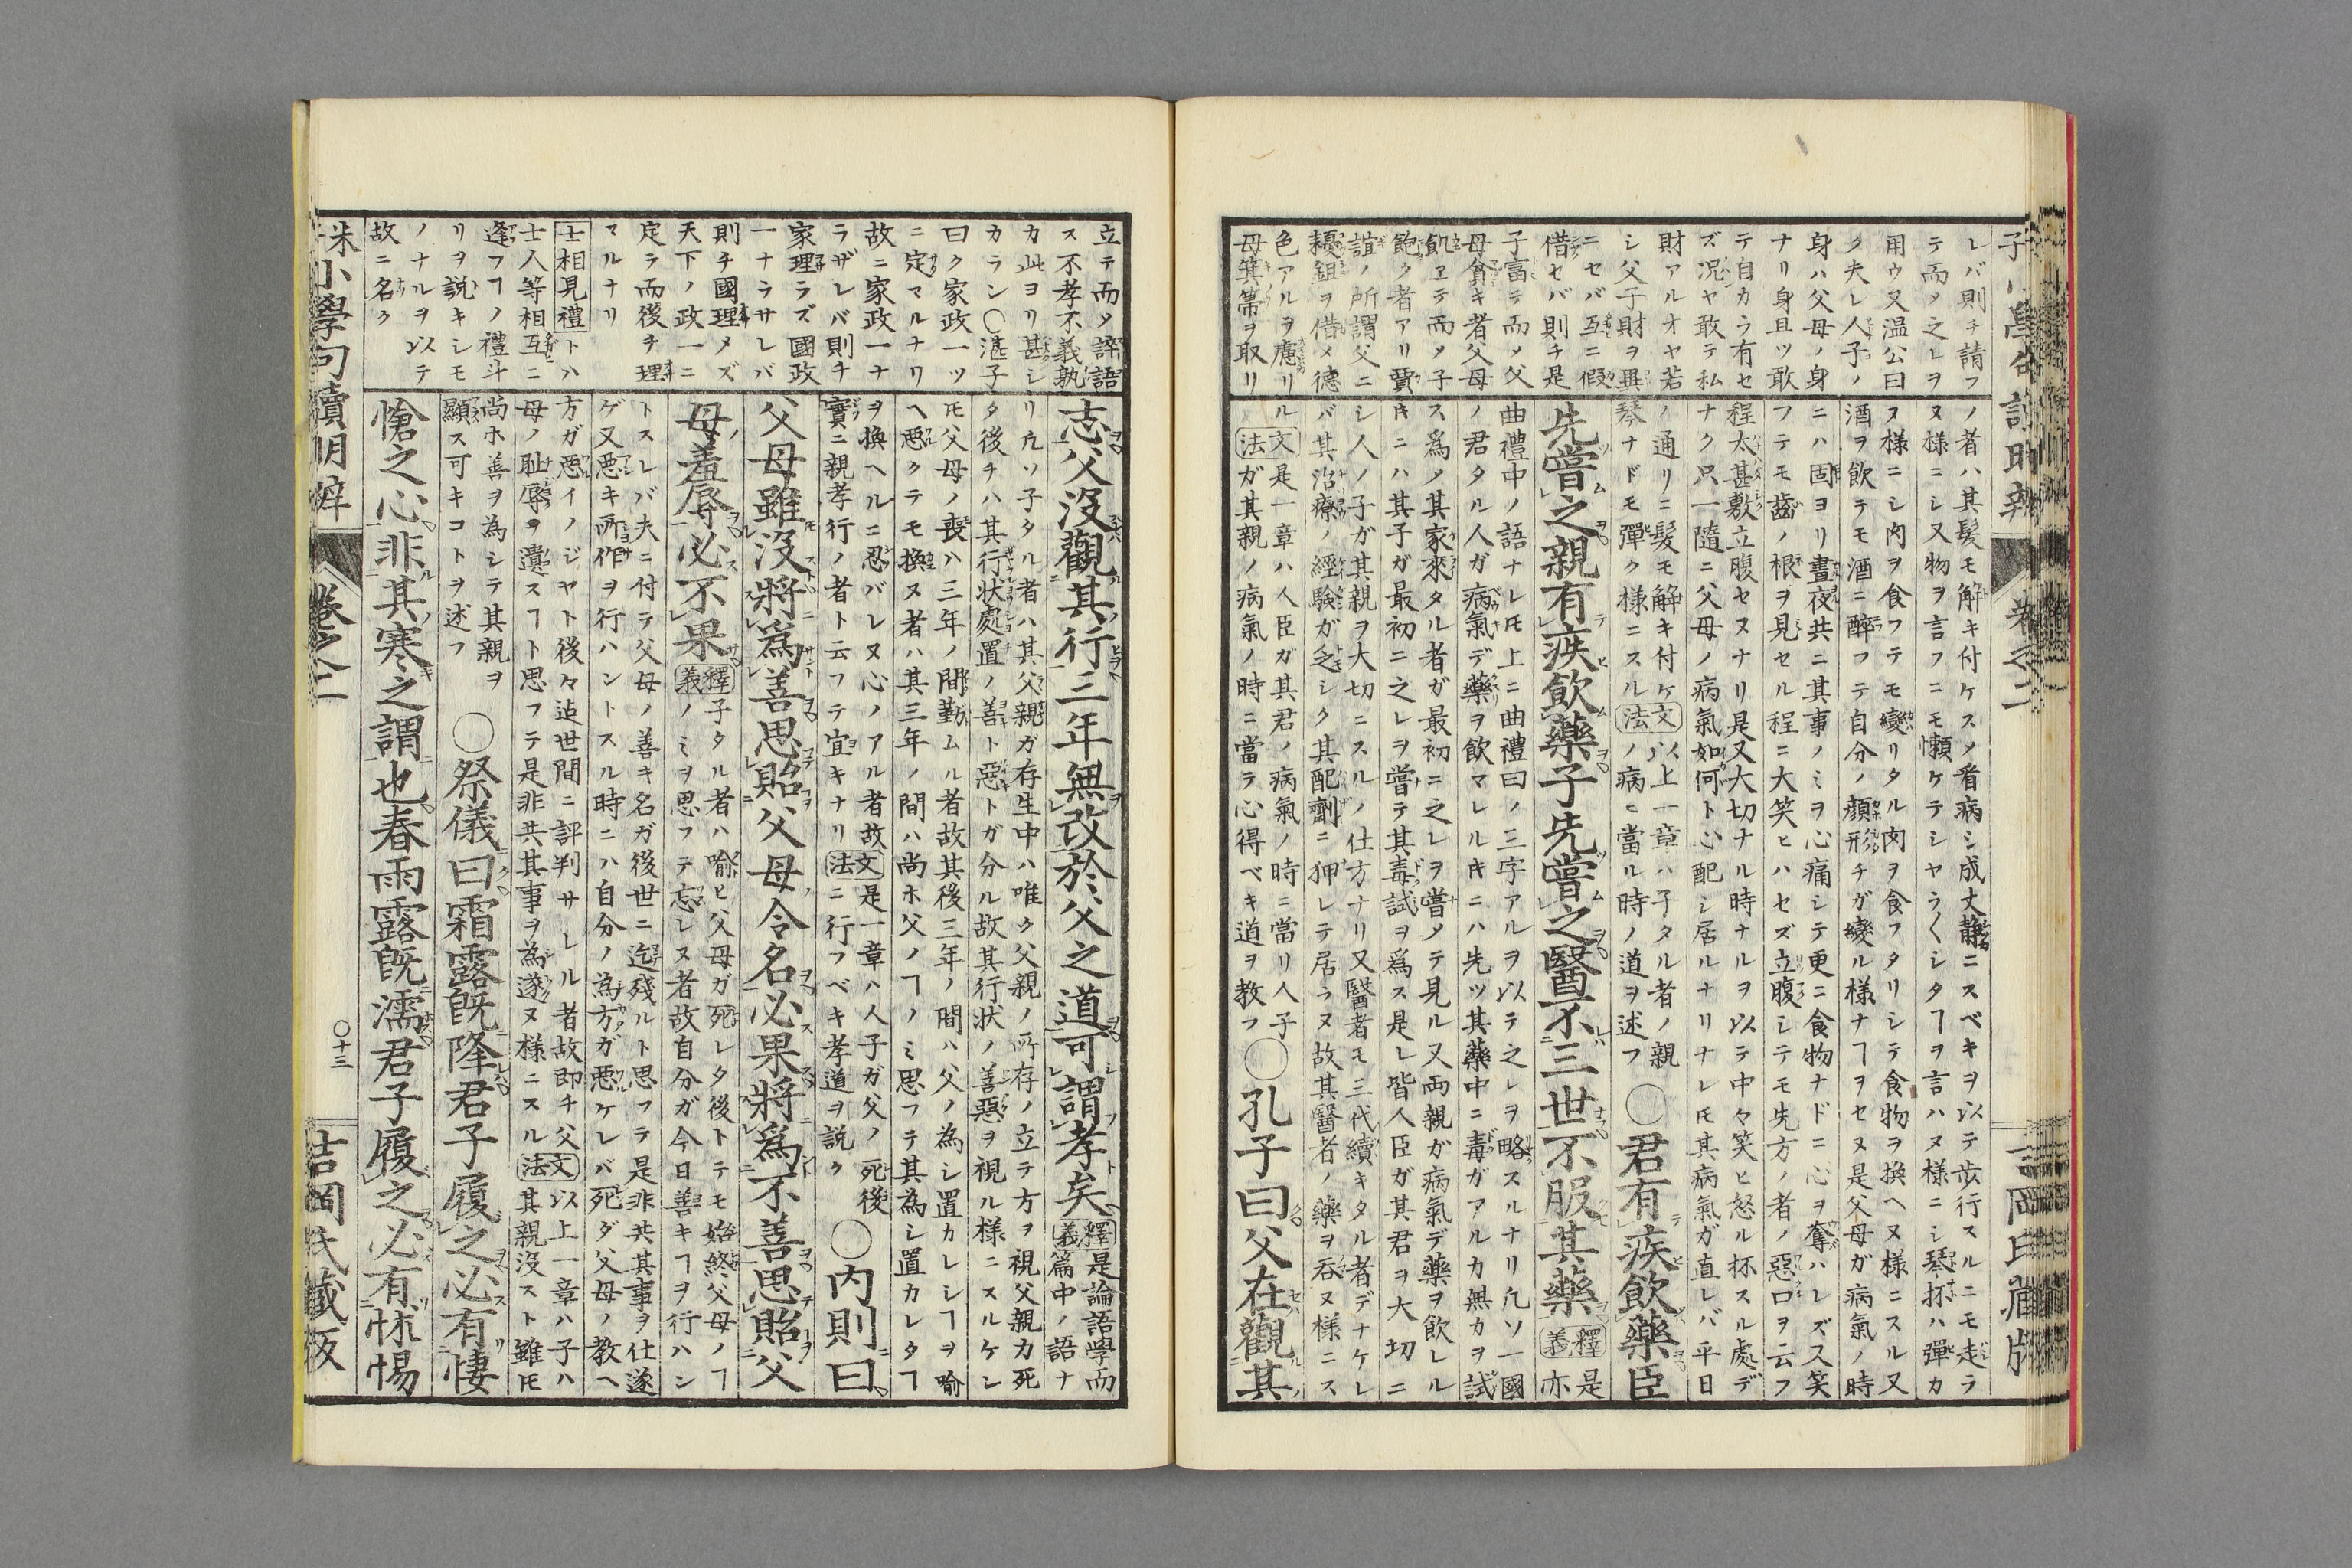 レバ則チ請フ
テ而メ之レヲ
用ウ又温公曰
ク夫レ人子ノ
身ハ父母ノ身
ナリ身且ツ敢
テ自カラ有セ
ズ况ヤ敢テ私
財アルオヤ若
シ父子財ヲ異
ニセバ互ニ假
借セバ則チ是
子富テ而メ父
母貧キ者父母
飢ヱテ而メ子
飽ク者アリ賈
誼ノ所謂父ニ
耰鉏ヲ借メ德
色アルヲ慮リ
母箕箒ヲ取リ
ノ者ハ其髪モ解キ付ケスメ看病シ成丈静ニスベキヲ以テ歩行スルニモ走ラ
ヌ様ニシ又物ヲ言フニモ懶ケテシヤラ〱シタヿヲ言ハヌ様ニシ琴抔ハ彈カ
ヌ様ニシ肉ヲ食フテモ變リタル肉ヲ食フタリシテ食物ヲ換ヘヌ様ニスル又
酒ヲ飲テモ酒ニ醉フテ自分ノ顔形チガ變ル様ナヿヲセヌ是父母ガ病氣ノ時
ニハ固ヨリ晝夜共ニ其事ノミヲ心痛シテ更ニ食物ナドニ心ヲ奪ハレズス笑
フテモ齒ノ根ヲ見セル程ニ大笑ヒハセズ立腹シテモ先方ノ者ノ惡口ヲ云フ
程太甚敷立腹セヌナリ是又大切ナル時ナルヲ以テ中々笑ヒ怒ル抔スル處デ
ナク只一隨ニ父母ノ病氣如何ト心配シ居ルナリナレ𪜈其病氣ガ直レバ平日
ノ通リニ髪モ解キ付ケ 文法 以上一章ハ子タル者ノ親
琴ナドモ彈ク様ニスル ノ病ニ當ル時ノ道ヲ述フ
○君有疾飲藥臣
先嘗之親有疾飲藥子先嘗之醫不三世不服其藥 釋義 是亦
曲禮中ノ語ナレ𪜈上ニ曲禮曰ノ三字アルヲ以テ之レヲ略スルナリ凡ソ一國
ノ君タル人ガ病氣デ藥ヲ飲マレルキニハ先ツ其藥中ニ毒ガアルカ無カヲ試
ス爲メ其家來タル者ガ最初ニ之レヲ嘗メテ見ル又両親ガ病氣デ藥ヲ飲レル
キニハ其子ガ最初ニ之レヲ嘗テ其毒試ヲ爲ス是レ皆人臣ガ其君ヲ大切ニ
シ人ノ子ガ其親ヲ大切ニスルノ仕方ナリ又醫者モ三代續キタル者デナケレ
バ其治療ノ經験ガ乏シク其配劑ニ狎レテ居ラヌ故其醫者ノ藥ヲ呑ヌ様ニス
ル 文法 是一章ハ人臣ガ其君ノ病氣ノ時ニ當リ人子
ガ其親ノ病氣ノ時ニ當ラ心得ベキ道ヲ教フ
○孔子曰父在觀其
卷之二
立テ而メ誶語
ス不孝不義孰
カ此ヨリ甚シ
カラン○湛子
曰ク家政一ツ
ニ定マルナリ
故ニ家政一ナ
ラザレバ則チ
家理ラズ國政
一ナラサレバ
則チ國理メズ
天下ノ政一ニ
定ラ而後チ理
マルナリ
士相見禮トハ
士人等相互ニ
逢フヿノ禮斗
リヲ説キシモ
ノナルヲ以テ
故ニ名ク
志父没觀其行三年無改於父之道可謂孝矣 釋義 是論語學而
篇中ノ語ナ
リ凡ソ子タル者ハ其父親ガ存生中ハ唯ク父親ノ所存ノ立テ方ヲ視父親カ死
タ後チハ其行状處置ノ善ト惡トガ分ル故其行状ノ善惡ヲ視ル様ニスルケン
𪜈父母ノ喪ハ三年ノ間勤ムル者故其後三年ノ間ハ父ノ為シ置カレシヿヲ喩
ヘ悪クテモ換ヌ者ハ其三年ノ間ハ尚ホ父ノヿノミ思フテ其為シ置カレタヿ
ヲ換ヘルニ忍バレヌ心ノアル者故 文法 是一章ハ人子ガ父ノ死後
實ニ親孝行ノ者ト云フテ宜キナリ ニ行フベキ孝道ヲ説ク
○内則曰
父母雖没將爲善思貽父母令名必果將爲不善思貽父
母羞辱必不果 釋義 子タル者ハ喩ヒ父母ガ死レタ後トテモ始終父母ノヿ
ノミヲ思フテ忘レヌ者故自分ガ今日善キヿヲ行ハン
トスレバ夫ニ付テ父母ノ善キ名ガ後世ニ迄殘ルト思フラ是非共其事ヲ仕遂
ゲ又悪キ所作ヲ行ハントスル時ニハ自分ノ為方ガ悪ケレバ死ダ父母ノ教ヘ
方ガ悪イノジヤト後々迠世間ニ評判サレル者故即チ父 文法 以上一章ハ子ハ
母ノ耻辱ヲ遺スヿト思フテ是非共其事ヲ為遂ヌ様ニスル 其親没スト雖𪜈
尚ホ善ヲ為シテ其親ヲ
顯ス可キコトヲ述フ
○祭儀曰霜露既降君子履之必有悽
愴之心非其寒之謂也春雨露既濡君子履之必有怵惕
小學句讀明辨
卷之二
○十三
吉岡氏藏版